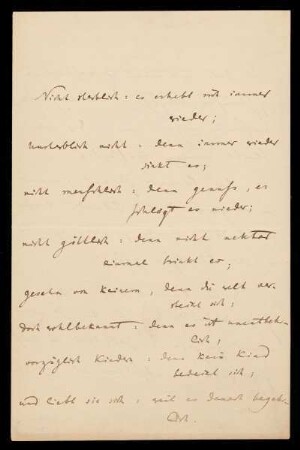 Nicht sterblich: es erhebt sich immer
wieder;
Unsterblich nicht: denn immer wieder
sinkt es;
nicht menschlich: denn genuss, es
schlägt es nieder;
nicht göttlich: denn nicht nektar
einmal trinkt es;
gesehn von keinem, denn die welt ver-
steckt sich;
doch wohlbekannt: denn es ist unentbehr-
lich;
vorzüglich Kindern: denn kein Kind
bedeckt sich;
und liebt sie sich: weil es danach begehr-
lich.